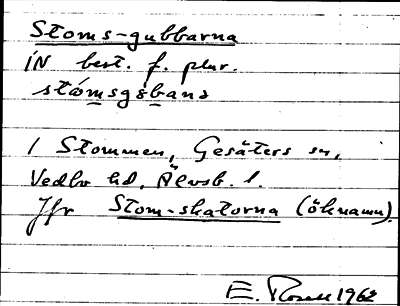 Stoms-gubbarna
IN best. f. plur.
stómsgòbana
I Stommen, Gesäters sn,
Vedbo hd, Älvsb. l.
Jfr Stom-skatorna (öknamn).
E. Rosell 1962